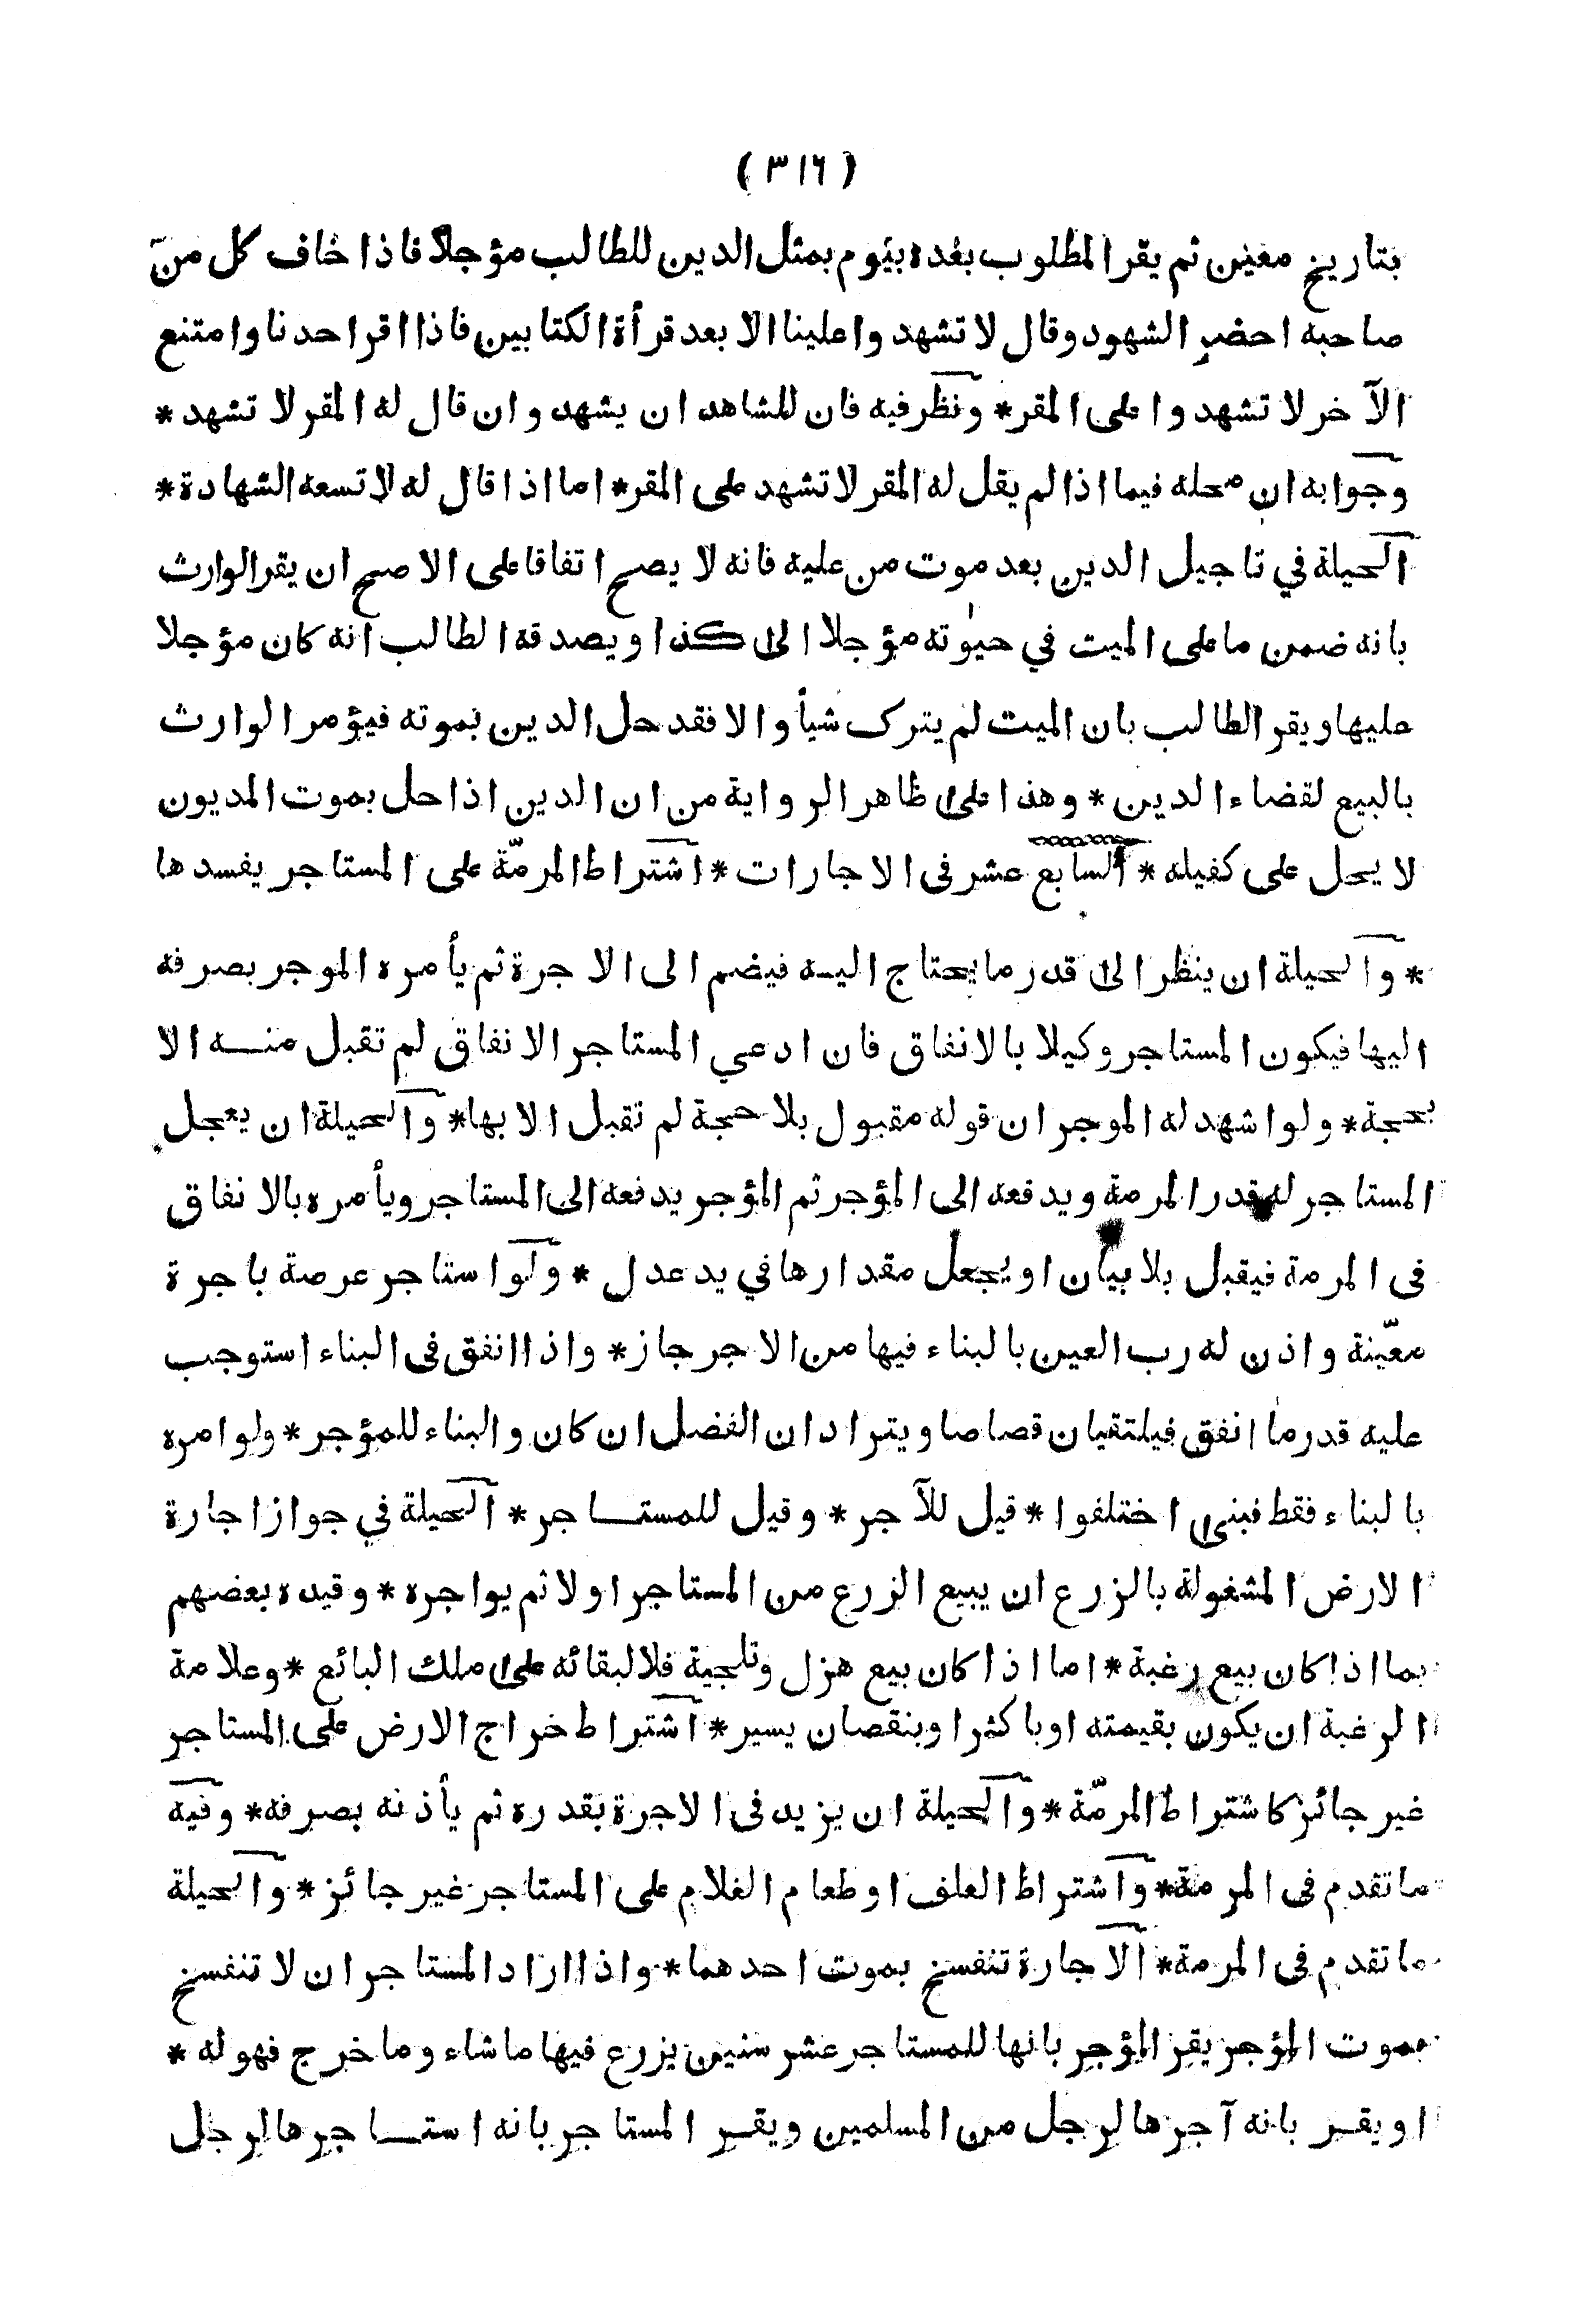 ( ٣١٦ )
بتاريخ معين ثم يقر المطلوب بعده بيوم بمثل الدين للطالب مؤجلا فاذا خاف كل من
صاحبه احضر الشهود وقال لا تشهدوا علينا الا بعد قرأة الكتابين فاذا اقر احدنا وامتنع
الآخر لا تشهدوا على المقر * ونظر فيه فان للشاهد ان يشهد وان قال له المقر لا تشهد *
وجوابه ان محله فيما اذا لم يقل له المقر لا تشهد على المقر * اما اذا قال له لا تسعه الشهادة *
الحيلة في تاجيل الدين بعد موت من عليه فانه لا يصح اتفاقا على الاصح ان يقر الوارث
بانه ضمن ما على الميت في حيوٰته مؤجلا الى كذا ويصدقه الطالب انه كان مؤجلا
عليها ويقر الطالب بان الميت لم يترك شيأ والا فقد حل الدين بموته فيؤمر الوارث
بالبيع لقضاء الدين * وهذا على ظاهر الرواية من ان الدين اذا حل بموت المديون
لا يحل على كفيله * السابع عشر فى الاجارات * اشتراط المرمّة على المستاجر يفسدها
* والحيلة ان ينظر الى قدر ما يحتاج اليـه فيضم الى الاجرة ثم يأمره الموجر بصرفه
اليها فيكون المستاجر وكيلا بالانفاق فان ادعي المستاجر الانفاق لم تقبل منـــه الا
بحجة * ولو اشهد له الموجر ان قوله مقبول بلا حجة لم تقبل الا بها * والحيلة ان يعجل
المستاجر له قدر المرمة ويدفعه الى المؤجر ثم المؤجر يدفعه الى المستاجر ويأمره بالانفاق
فى المرمة فيقبل بلا بيان او يجعل مقدارها في يد عدل * ولو استاجر عرصة باجرة
معيّنة واذن له رب العين بالبناء فيها من الاجر جاز * واذا انفق فى البناء استوجب
عليه قدر ما انفق فيلتقيان قصاصا ويترادان الفضل ان كان والبناء للمؤجر * ولو امره
بالبناء فقط فبنى اختلفوا * قيل للآجر * وقيل للمستـــاجر * الحيلة في جواز اجارة
الارض المشغولة بالزرع ان يبيع الزرع من المستاجر اولا ثم يواجره * وقيده بعضهم
بما اذا كان بيع رغبة * اما اذا كان بيع هزل وتلجية فلا لبقائه على ملك البائع * وعلامة
الرغبة ان يكون بقيمته او باكثر او بنقصان يسير * اشتراط خراج الارض على المستاجر
غير جائز كاشتراط المرمّة * والحيلة ان يزيد فى الاجرة بقدره ثم يأذنه بصرفه * وفيه
ما تقدم فى المرمة * واشتراط العلف او طعام الغلام على المستاجر غير جائز * والحيلة
ما تقدم فى المرمة * الاجارة تنفسخ بموت احدهما * واذا اراد المستاجر ان لا تنفسخ
بموت المؤجر يقر المؤجر بانها للمستاجر عشر سنين يزرع فيها ما شاء وما خرج فهو له *
او يقــر بانه آجرها لرجل من المسلمين ويقــر المستاجر بانه استــاجرها لرجل